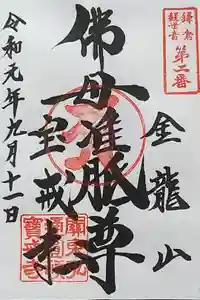 鎌倉
観世音
第二番
金龍山
佛母准胝尊
宝戒寺
令和元年九月十一日